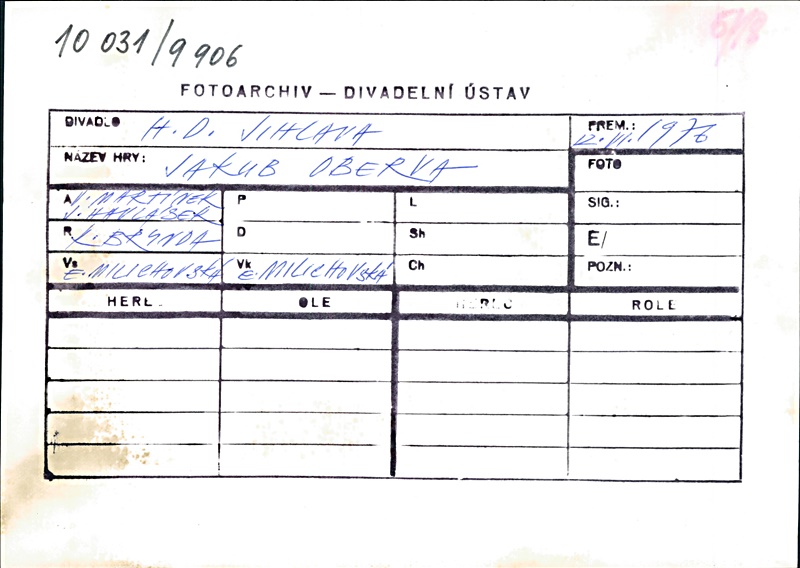 10 031/9 906
FOTOARCHIV — DIVADELNÍ ÚSTAV
DIVADLO H. D. JIHLAVA
PREM.: 12. III. 1976
NÁZEV HRY: JAKUB OBERVA
FOTO
A V. MARTINEK
J. HAVLÁSEK
P
L
SIG.:
R K. BRYNDA
D
Sh
E/
Vs E. MILICHOVSKÁ
Vk E. MILICHOVSKÁ
Ch
POZN.:
HERE
OLE
HEREC
ROLE